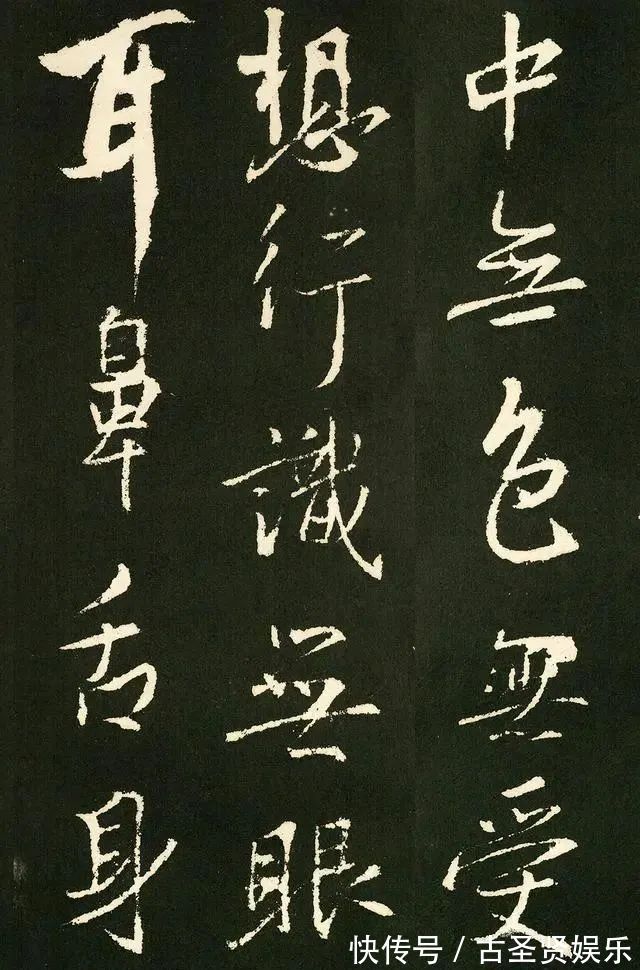 中無色無受
想行識無眼
耳鼻舌身
快传号/古圣贤娱乐